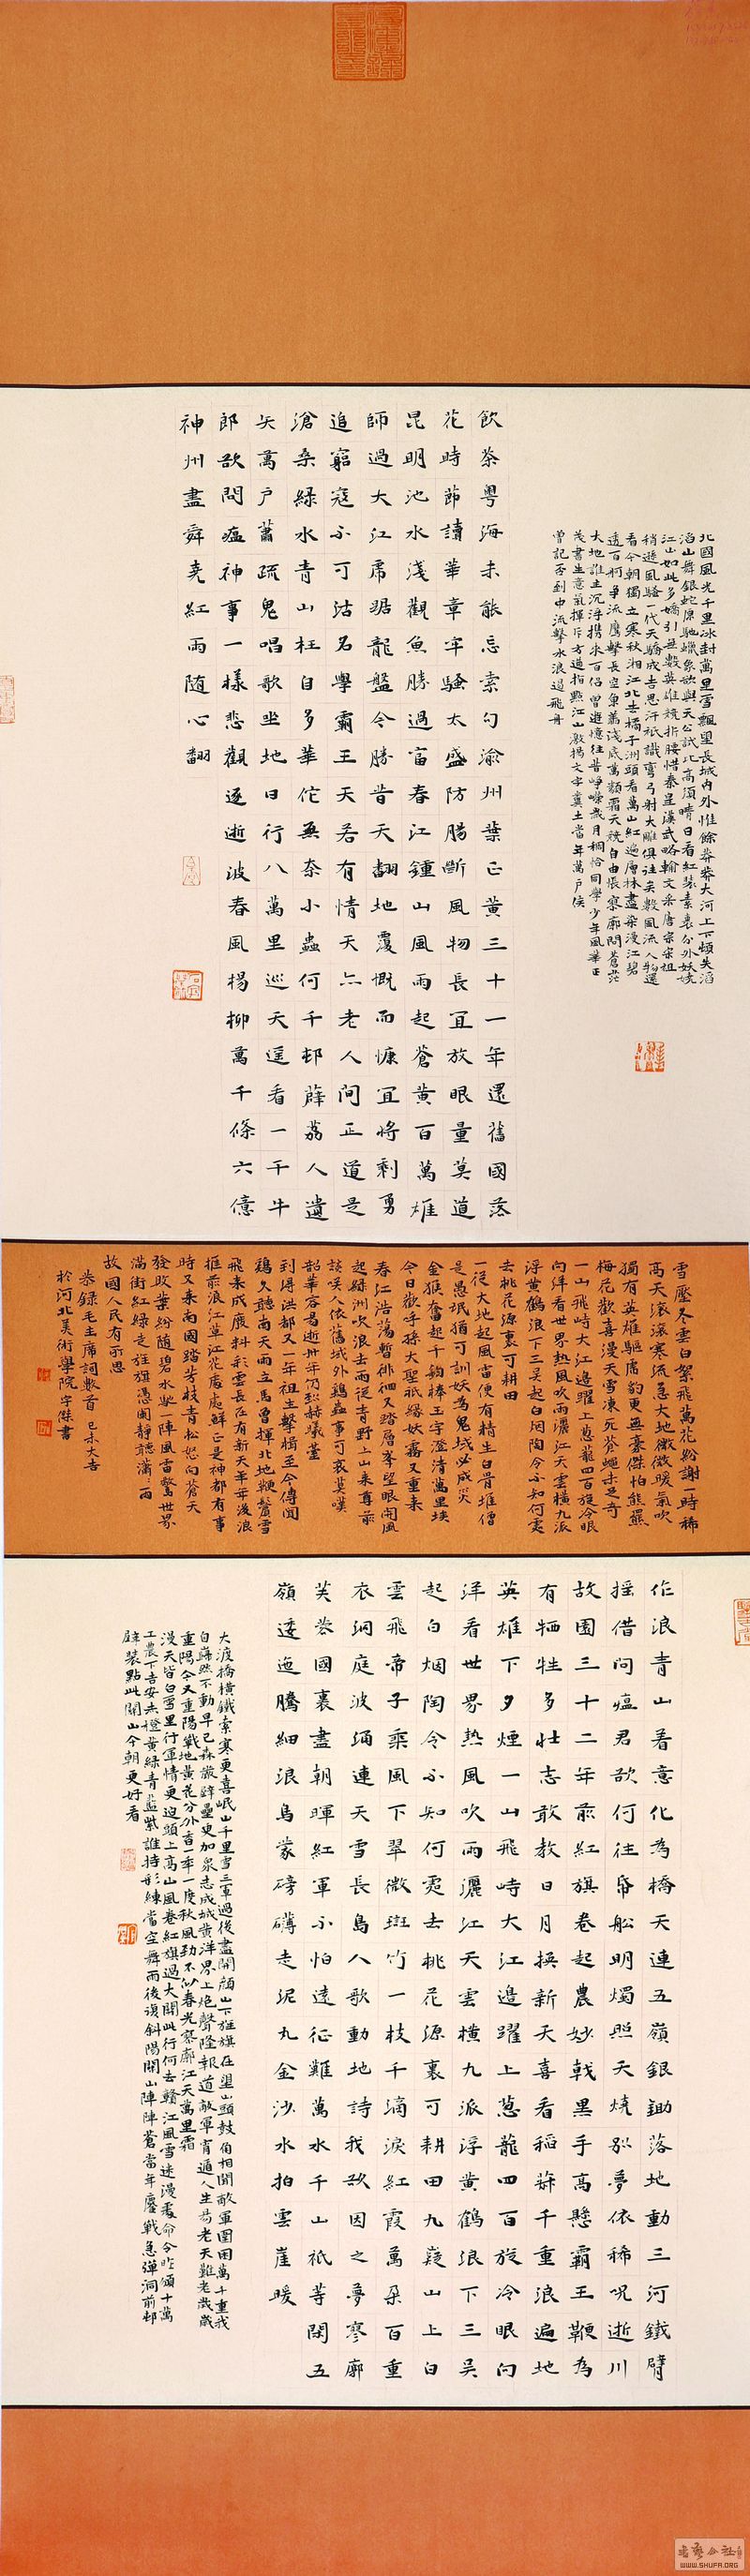 北國風光千里冰封萬里雪飄望長城內外惟餘莽莽大河上下頓失滔
滔山舞銀蛇原馳蠟象欲與天公試比高須晴日看紅裝素裹分外妖嬈
江山如此多嬌引無數英雄競折腰惜秦皇漢武略輸文采唐宗宋祖
稍遜風騷一代天驕成吉思汗祇識彎弓射大雕俱往矣數風流人物還
看今朝獨立寒秋湘江北去橘子洲頭看萬山紅遍層林盡染漫江碧
透百舸爭流鷹擊長空魚翔淺底萬類霜天競自由悵寥廓問蒼茫
大地誰主沉浮携來百侶曾遊憶往昔崢嶸歲月稠恰同學少年風華正
茂書生意氣揮斥方遒指點江山激揚文字糞土當年萬戶侯
曾記否到中流擊水浪遏飛舟
飲茶粵海未能忘索句渝州葉正黃三十一年還舊國落
花時節讀華章牢騷太盛防腸斷風物長宜放眼量莫道
昆明池水淺觀魚勝過富春江鍾山風雨起蒼黃百萬雄
師過大江虎踞龍盤今勝昔天翻地覆慨而慷宜將剩勇
追窮寇不可沽名學霸王天若有情天亦老人間正道是
滄桑綠水青山枉自多華佗無奈小蟲何千邨薜荔人遺
矢萬戶蕭疏鬼唱歌坐地日行八萬里巡天遙看一千牛
郎欲問瘟神事一樣悲觀逐逝波春風楊柳萬千條六億
神州盡舜堯紅雨隨心翻
雪壓冬雲白絮飛萬花紛謝一時稀
高天滾滾寒流急大地微微暖氣吹
獨有英雄驅虎豹更無豪傑怕熊羆
梅花歡喜漫天雪凍死蒼蠅未足奇
一山飛峙大江邊躍上蔥蘢四百旋冷眼
向洋看世界熱風吹雨灑江天雲橫九派
浮黃鶴浪下三吳起白烟陶令不知何處
去桃花源裏可耕田
一從大地起風雷便有精生白骨堆僧
是愚氓猶可訓妖為鬼蜮必成災
金猴奮起千鈞棒玉宇澄清萬里埃
今日歡呼孫大聖祇緣妖霧又重來
春江浩蕩暫徘徊又踏層峯望眼開風
起綠洲吹浪去雨從青野上山來尊前
談笑人依舊域外鷄蟲事可哀莫嘆
韶華容易逝卅年仍到赫曦臺
到得洪都又一年祖生擊楫至今傳聞
鷄久聽南天雨立馬曾揮北地鞭鬢雪
飛來成廢料彩雲長在有新天年年後浪
推前浪江草江花處處鮮正是神都有事
時又來南國踏芳枝青松怒向蒼天
發敗葉紛隨碧水馳一陣風雷驚世界
滿街紅綠走旌旗憑闌靜聽瀟〻雨
故國人民有所思
恭錄毛主席詞數首 己未大吉
於河北美術學院字傑書
作浪青山着意化為橋天連五嶺銀鋤落地動三河鐵臂
搖借問瘟君欲何往帋船明燭照天燒別夢依稀呪逝川
故園三十二年前紅旗卷起農奴戟黑手高懸霸王鞭為
有犧牲多壯志敢教日月換新天喜看稻菽千重浪遍地
英雄下夕煙一山飛峙大江邊躍上蔥蘢四百旋冷眼向
洋看世界熱風吹雨灑江天雲橫九派浮黃鶴浪下三吳
起白烟陶令不知何處去桃花源裏可耕田九嶷山上白
雲飛帝子乘風下翠微斑竹一枝千滴淚紅霞萬朵百重
衣洞庭波涌連天雪長島人歌動地詩我欲因之夢寥廓
芙蓉國裏盡朝暉紅軍不怕遠征難萬水千山祇等閑五
嶺逶迤騰細浪烏蒙磅礴走泥丸金沙水拍雲崖暖
大渡橋橫鐵索寒更喜岷山千里雪三軍過後盡開顏山下旌旗在望山頭鼓角相聞敵軍圍困萬千重我
自巋然不動早已森嚴壁壘更加衆志成城黃洋界上炮聲隆報道敵軍宵遁人生易老天難老歲歲
重陽今又重陽戰地黃花分外香一年一度秋風勁不似春光寥廓江天萬里霜
漫天皆白雪里行軍情更迫頭上高山風卷紅旗過大關此行何去贛江風雪迷漫處命令昨頒十萬
工農下吉安赤橙黃綠青藍紫誰持彩練當空舞雨後復斜陽關山陣陣蒼當年鏖戰急彈洞前邨
壁裝點此關山今朝更好看
书艺公社
WWW.SHUFA.ORG